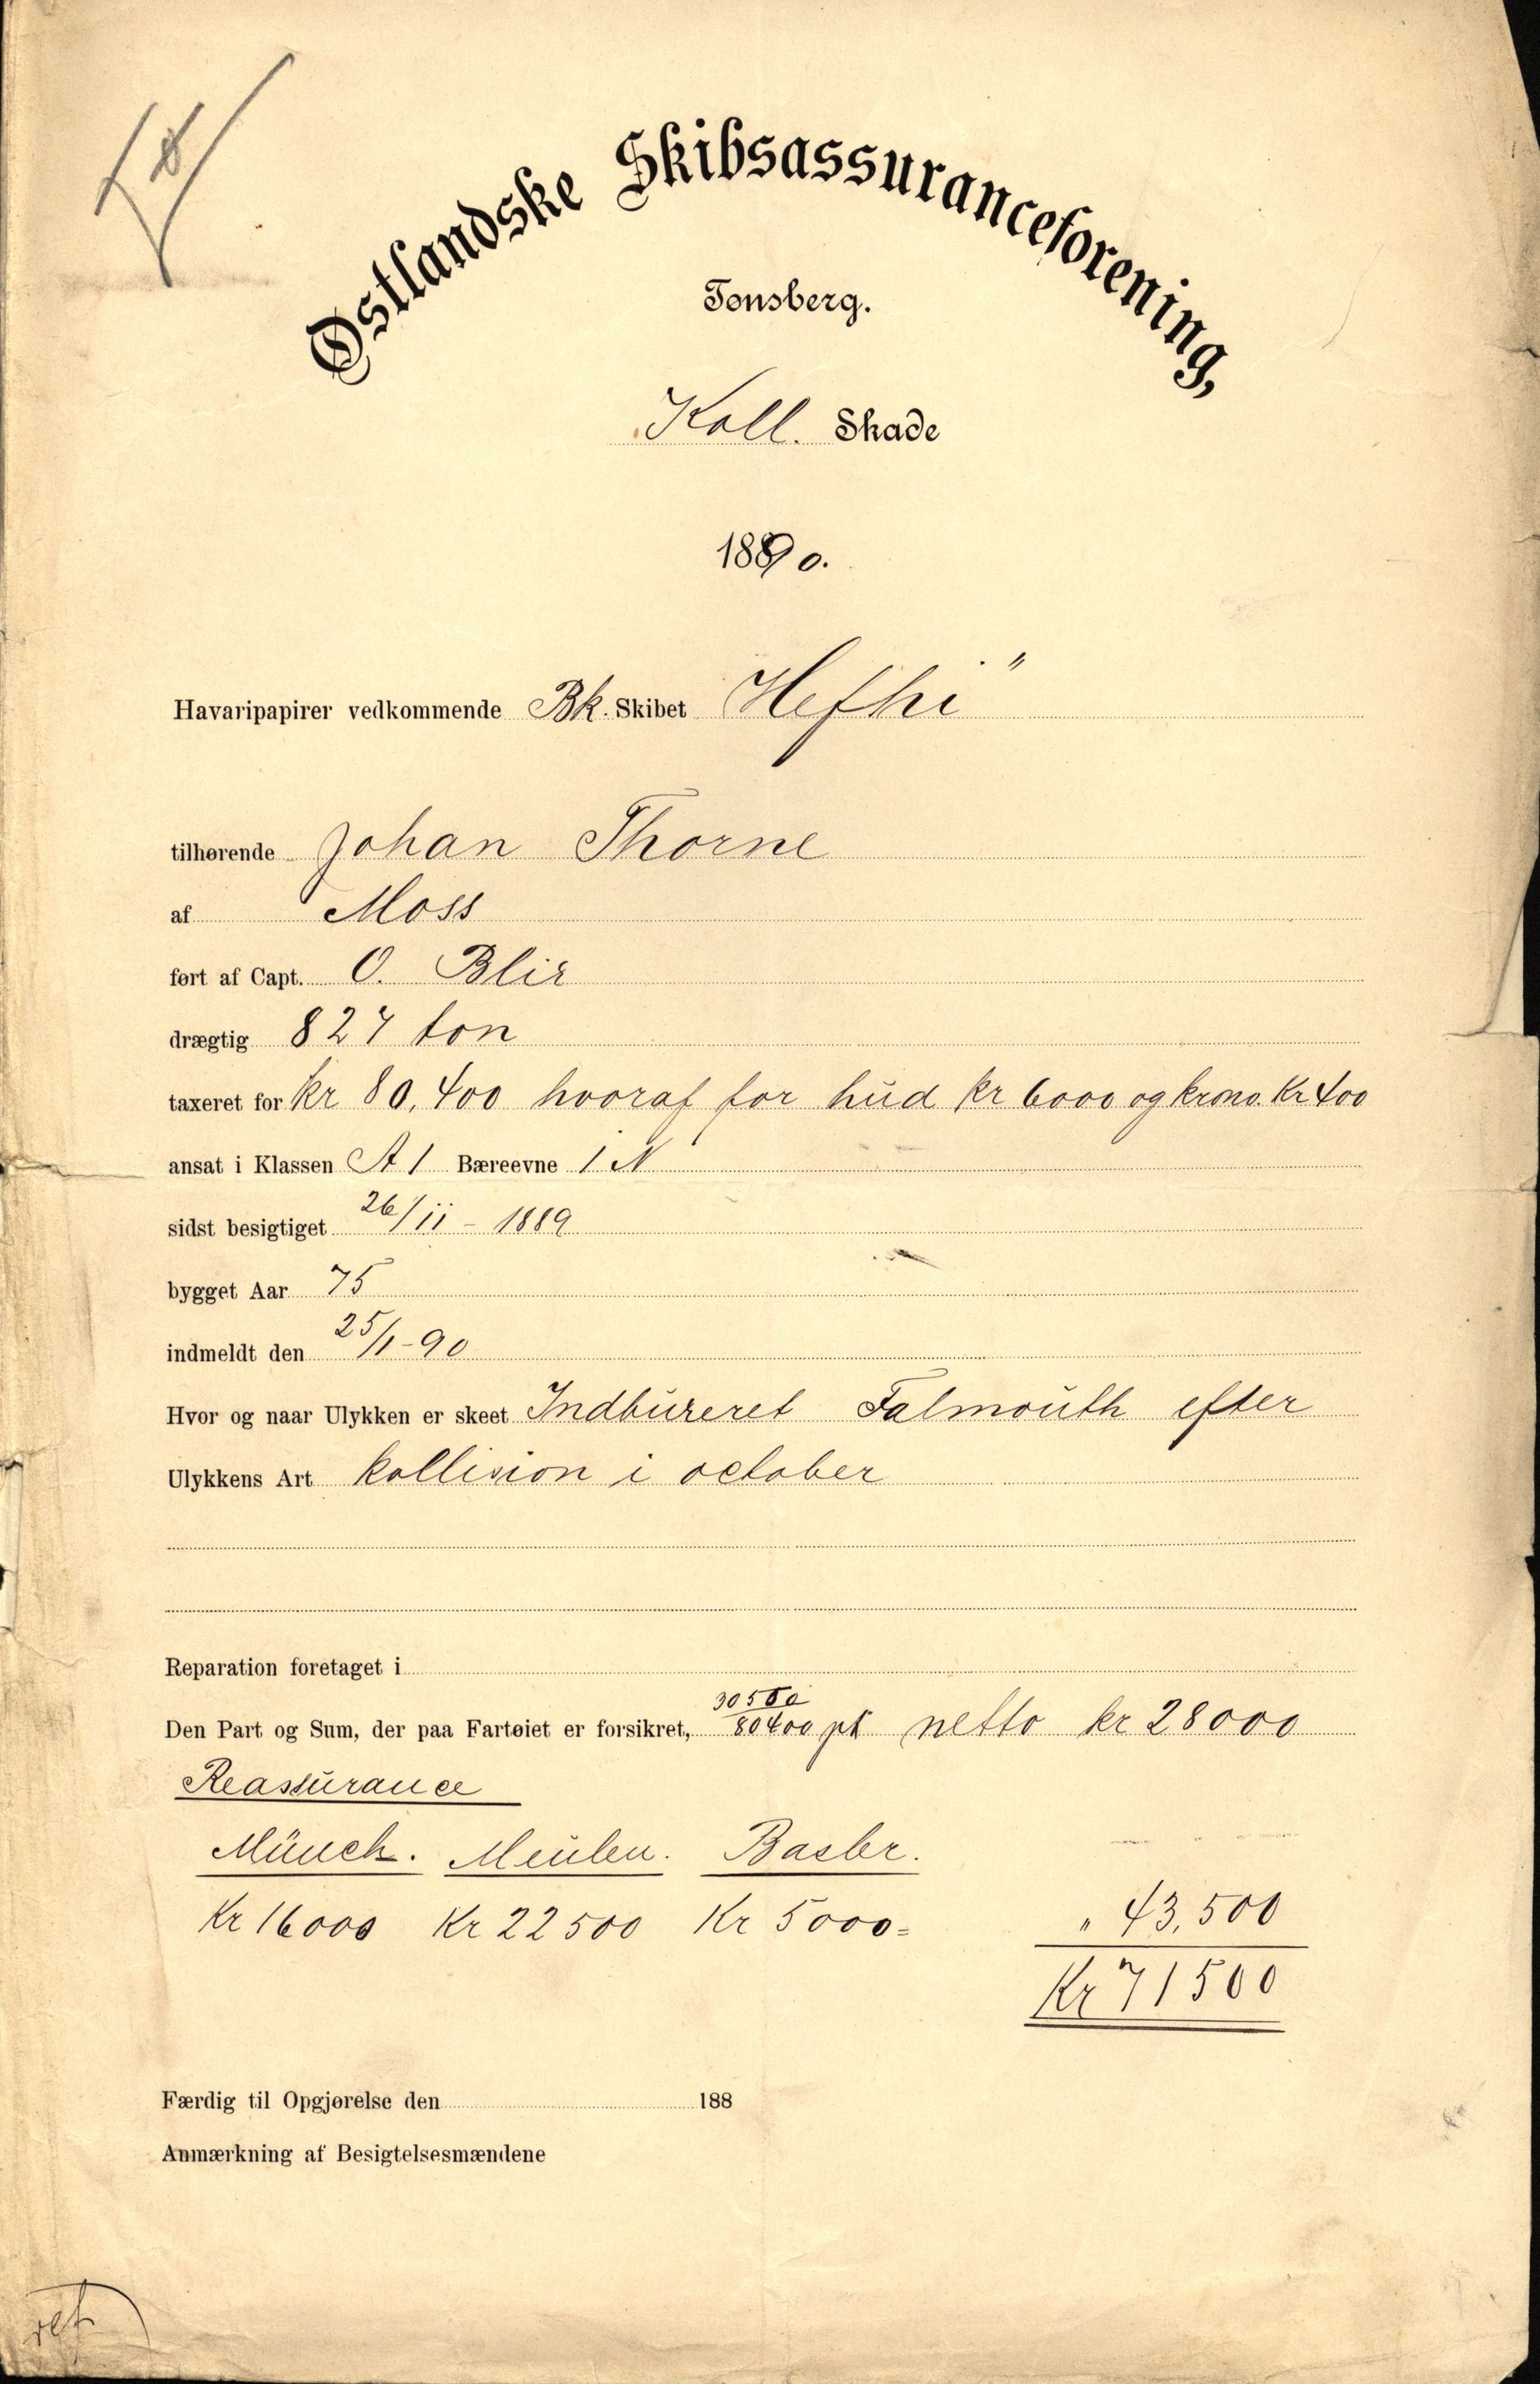 Østlandske Skibsassuranceforening,
Tønsberg.
Koll. Skade
1890.
Havaripapirer vedkommende Bk. Skibet Hefhi"
tilhørende Johan Thorne
af Moss
ført af Capt. O. Blix
drægtig 827 ton
taxeret for kr 80,400 hvoraf for hud kr 6000 og krono. Kr 400
ansat i Klassen A 1 Bæreevne 1 N
sidst besigtiget 26/11 - 1889
bygget Aar 75
indmeldt den 25/1-90
Hvor og naar Ulykken er skeet Indbugseret Falmouth efter
Ulykkens Art kollision i october
Reparation foretaget i
Den Part og Sum, der paa Fartøiet er forsikret, 30500/80400 pt netto kr 28000
Reassurance
Münch. Meulen. Basler.
Kr 16000 Kr 22500 Kr 5000= " 43,500
Kr 71500
Færdig til Opgjørelse den 188
Anmærkning af Besigtelsesmændene
ret